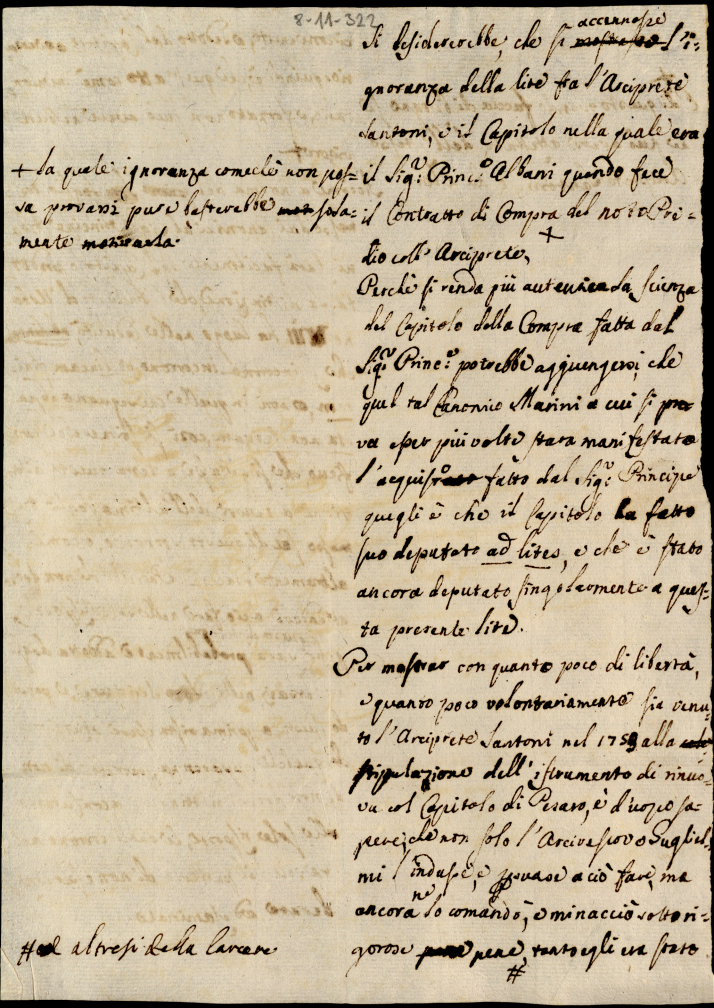 8-11-322
Si desidererebbe, che si mostrasse accennasse l'i=
gnoranza della lite fra l'Arciprete
Santoni, e il Capitolo nella quale era
il Sigr: Princ:e Albani quando fece
il Contratto di Compra del noto Pre=
dio coll' Arciprete,
+
+ la quale ignoranza comecchè non pos=
sa provarsi pure basterebbe sola=
mente
Perchè si renda più autentica la scienza
del Capitolo della Compra fatta dal
Sigr: Princ:e potrebbe aggiungersi, che
quel tal Canonico Marini a cui si pro=
va esser più volte stata manifestata
l'acquisto fatto dal Sigr: Principe
quegli è che il Capitolo ha fatto
suo deputato ad lites, e che è stato
ancora deputato singolarmente a ques=
ta presente lite.
Per mostrar con quanto poco di libertà,
e quanto poco volontariamente sia venu=
to l'Arciprete Santoni nel 1759 alla
stipulazione dell'istrumento di rinuo=
va col Capitolo di Pesaro, è d'uopo sa=
pere, che non solo l'Arcivescovo Gugliel=
mi l'indusse, e a ciò fare, ma
ancora ne lo comandò, e minacciò sotto ri=
gorose pene, tanto egli era stato
#
# ed altresì della Carcere